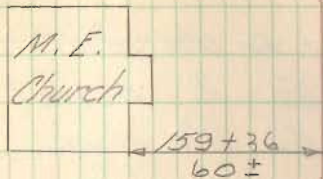 M. E.
Church
159+36
60±